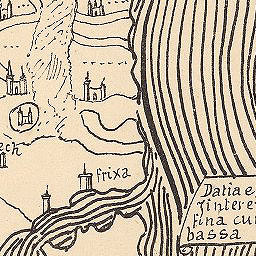 ech
frixa
Datia e
Jintere
fina cur
bassa